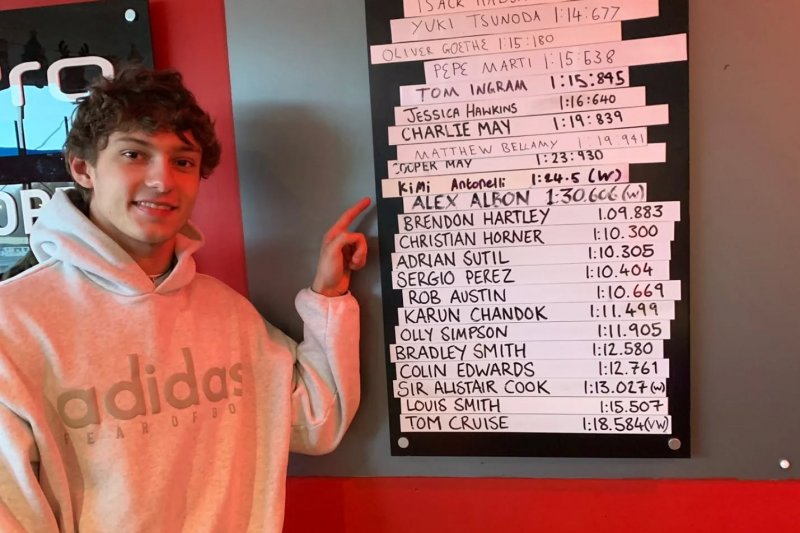 Pro
YUKI TSUNODA 1:14:677
OLIVER GOETHE 1:15:180
PEPE MARTI 1:15:638
TOM INGRAM 1:15:845
JESSICA HAWKINS 1:16:640
CHARLIE MAY 1:19:839
MATTHEW BELLAMY 1:19.941
COOPER MAY 1:23:930
KiMi Antonelli 1:24.5 (W)
ALEX ALBON 1:30.606 (W)
BRENDON HARTLEY 1.09.883
CHRISTIAN HORNER 1:10.300
ADRIAN SUTIL 1:10.305
SERGIO PEREZ 1:10.404
ROB AUSTIN 1:10.669
KARUN CHANDOK 1:11.499
OLLY SIMPSON 1:11.905
BRADLEY SMITH 1:12.580
COLIN EDWARDS 1:12.761
SIR ALISTAIR COOK 1:13.027(W)
LOUIS SMITH 1:15.507
TOM CRUISE 1:18.584(VW)
adidas
FEAR OF